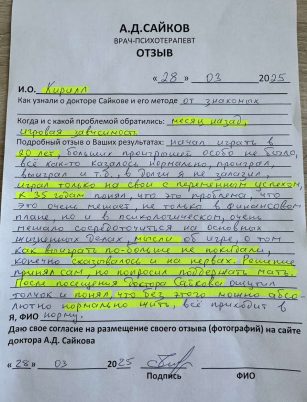 А.Д.САЙКОВ
ВРАЧ-ПСИХОТЕРАПЕВТ
ОТЗЫВ
«28» 03 2025
И.О. Кирилл
Как узнали о докторе Сайкове и его методе от знакомых
Когда и с какой проблемой обратились: месяц назад,
игровая зависимость
Подробный отзыв о Ваших результатах: начал играть в
20 лет, больших проигрышей особо не было,
всё как-то казалось нормально, проиграл,
выиграл и т.д., в долги я не залазил,
играл только на свои с переменным успехом,
к 35 годам понял, что это проблема, что
это очень мешает, не только в финансовом
плане, но и в психологическом, очень
мешало сосредоточиться на основных
жизненных целях, мысли об игре, о том
как выиграть по-больше не покидали,
конечно сказывалось и на нервах. Решение
принял сам, но попросил поддержать мать.
После посещения доктора Сайкова ощутил
толчок и понял, что без этого можно абсо
лютно нормально жить, всё приходит в
Я, ФИО норму.
Даю свое согласие на размещение своего отзыва (фотографий) на сайте
доктора А.Д. Сайкова
«28» 03 2025
Подпись ФИО